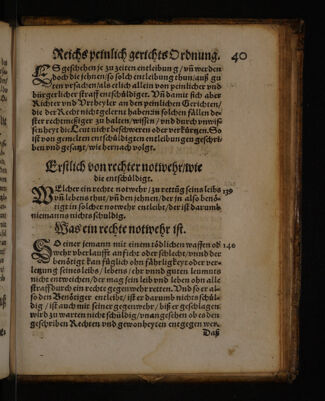 Reichs peinlich gerichts Ordnung. 40
ES geschehen je zu zeiten entleibung / vñ werden
doch die jehnen / so solch entleibung thun / auß gu
ten vrsachen / als etlich allein von peinlicher vnd
bürgerlicher straff entschüldiget. Vñ damit sich aber
Richter vnd Vrtheyler an den peinlichen Gerichten /
die der Recht nicht gelernt haben / in solchen fällen de-
ster rechtmeßiger zu halten / wissen / vnd durch vnwis-
senheyt die Leut nicht beschweren oder verkürtzen. So
ist von gemelten entschüldigten entleibungen geschri-
ben vnd gesatzt / wie hernach volgt.
Erstlich von rechter notwehr / wie
die entschüldigt.
WElcher ein rechte notwehr / zu rettũg seins leibs 139
vñ lebens thut / vñ den jehnen / der jn also benö-
tigt in solcher notwehr entleibt / der ist darumb
niemanns nichts schuldig.
Was ein rechte notwehr ist.
SO einer jemant mit einem tödlichen waffen od 140
wehr vberlaufft anficht oder schlecht / vnnd der
benötigt kan füglich ohn fährligkeyt oder ver-
letzung seines leibs / lebens / ehr vnnd guten leumuts
nicht entweichen / der mag sein leib vnd leben ohn alle
straff durch ein rechte gegenwehr retten. Vnd so er al-
so den Benötiger entleibt / ist er darumb nichts schül-
dig / ist auch mit seiner gegenwehr / biß er geschlagen
wird zu warten nicht schüldig / vnangesehen ob es den
geschriben Rechten vnd gewonheyten entgegen wer.
Daß